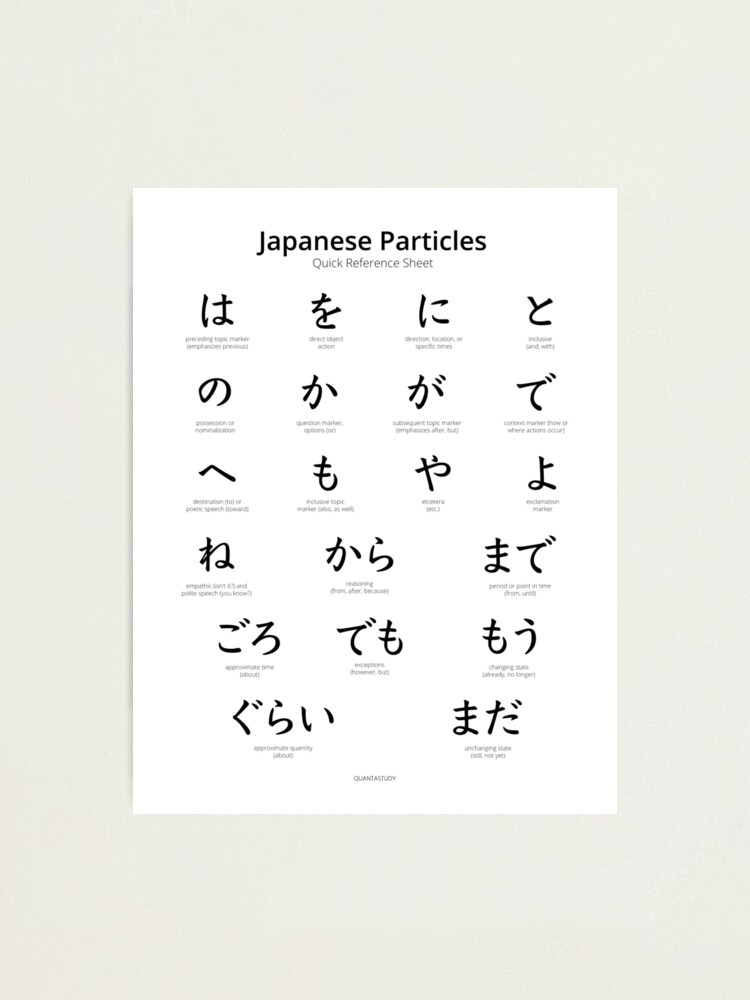 Japanese Particles
Quick Reference Sheet
は を に と
preceding topic marker
(emphasizes previous)
direct object
action
direction, location, or
specific times
inclusive
(and, with)
の か が で
possession or
nominalization
question marker,
options (or)
subsequent topic marker
(emphasizes after, but)
context marker (how or
where actions occur)
へ も や よ
destination (to) or
poetic speech (toward)
inclusive topic
marker (also, as well)
etcetera
(etc.)
exclamation
marker
ね から まで
empathic (isn't it?) and
polite speech (you know?)
reasoning
(from, after, because)
period or point in time
(from, until)
ごろ でも もう
approximate time
(about)
exceptions
(however, but)
changing state
(already, no longer)
ぐらい まだ
approximate quantity
(about)
unchanging state
(still, not yet)
QUANTASTUDY